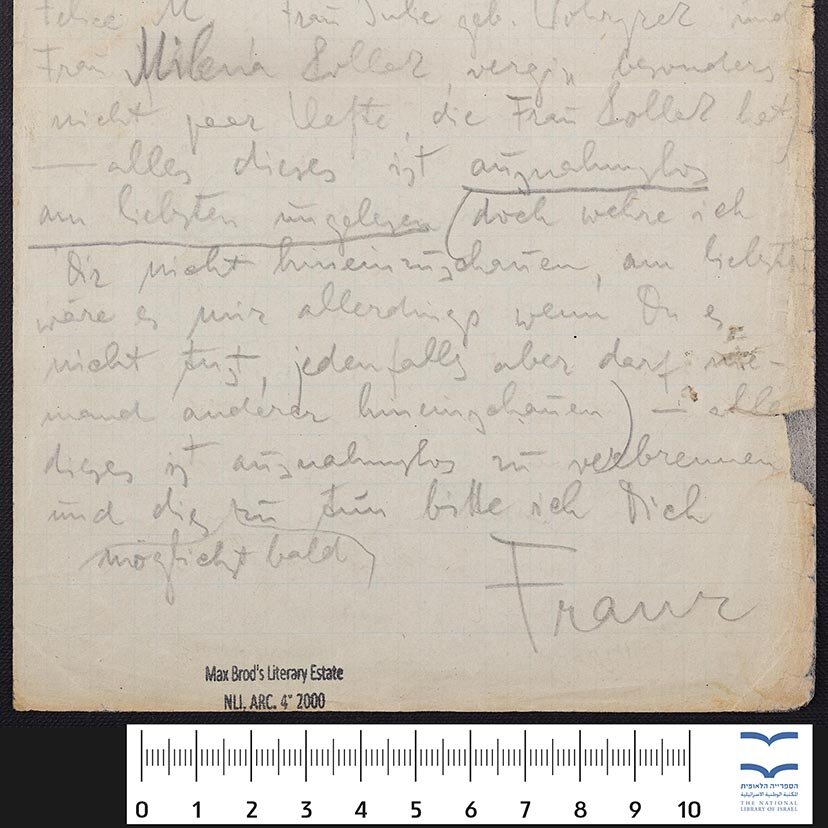 Felice M, Frau Julie geb. Wohryzek und
Frau Milena Pollak, vergiss besonders
nicht paar Hefte, die Frau Pollak hat)
— alles dieses ist ausnahmslos
am liebsten ungelesen (doch wehre ich
Dir nicht hineinzuschauen, am liebsten
wäre es mir allerdings wenn Du es
nicht tust, jedenfalls aber darf nie-
mand anderer hineinschauen) — alles
dieses ist ausnahmslos zu verbrennen
und dies zu tun bitte ich Dich
möglichst bald
Franz
Max Brod's Literary Estate
NLI, ARC. 4° 2000
0 1 2 3 4 5 6 7 8 9 10
הספרייה הלאומית
THE NATIONAL
LIBRARY OF ISRAEL